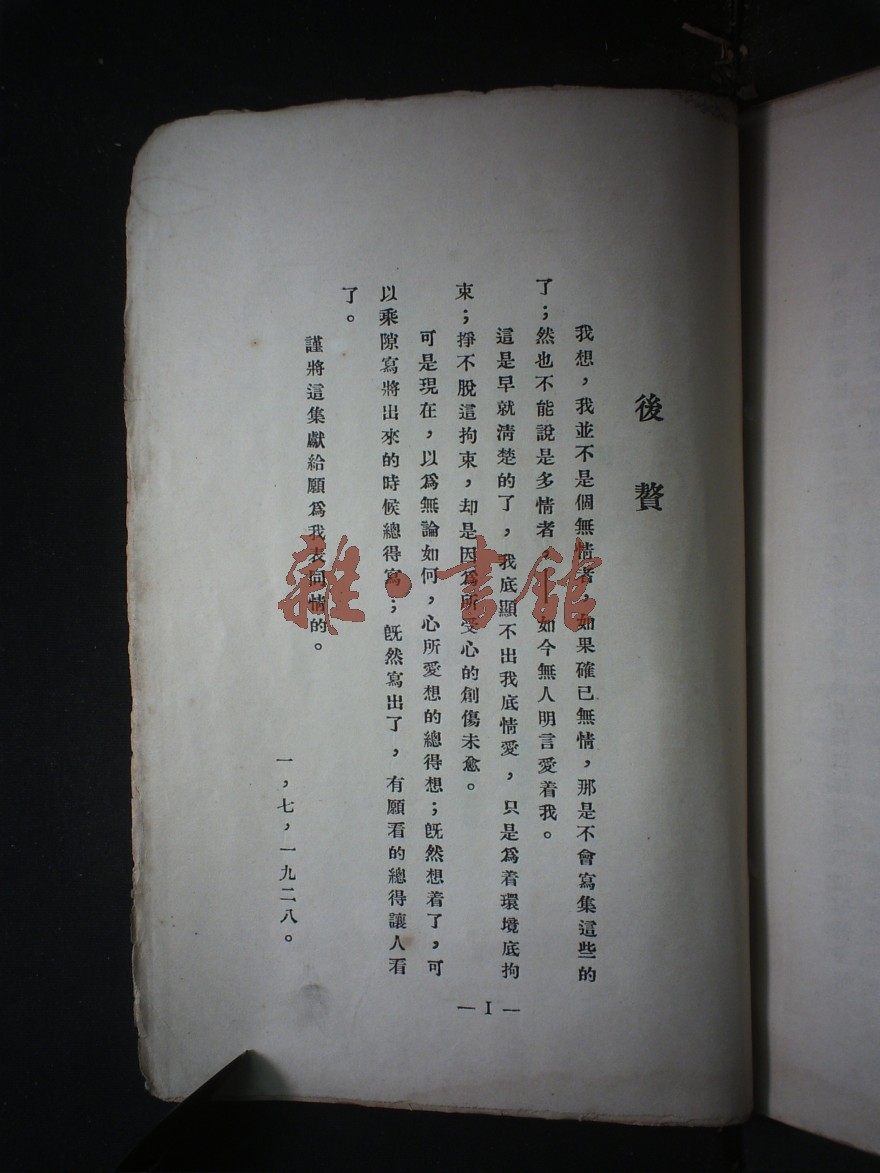 後贅
我想，我並不是個無情者，如果確已無情，那是不會寫集這些的
了；然也不能說是多情者，如今無人明言愛着我。
這是早就清楚的了，我底顯不出我底情愛，只是爲着環境底拘
束；掙不脫這拘束，却是因爲所受心的創傷未愈。
可是現在，以爲無論如何，心所愛想的總得想；旣然想着了，可
以乘隙寫將出來的時候總得寫；旣然寫出了，有願看的總得讓人看
了。
謹將這集獻給願爲我表同情的。
一，七，一九二八。
— I —
雜·書館